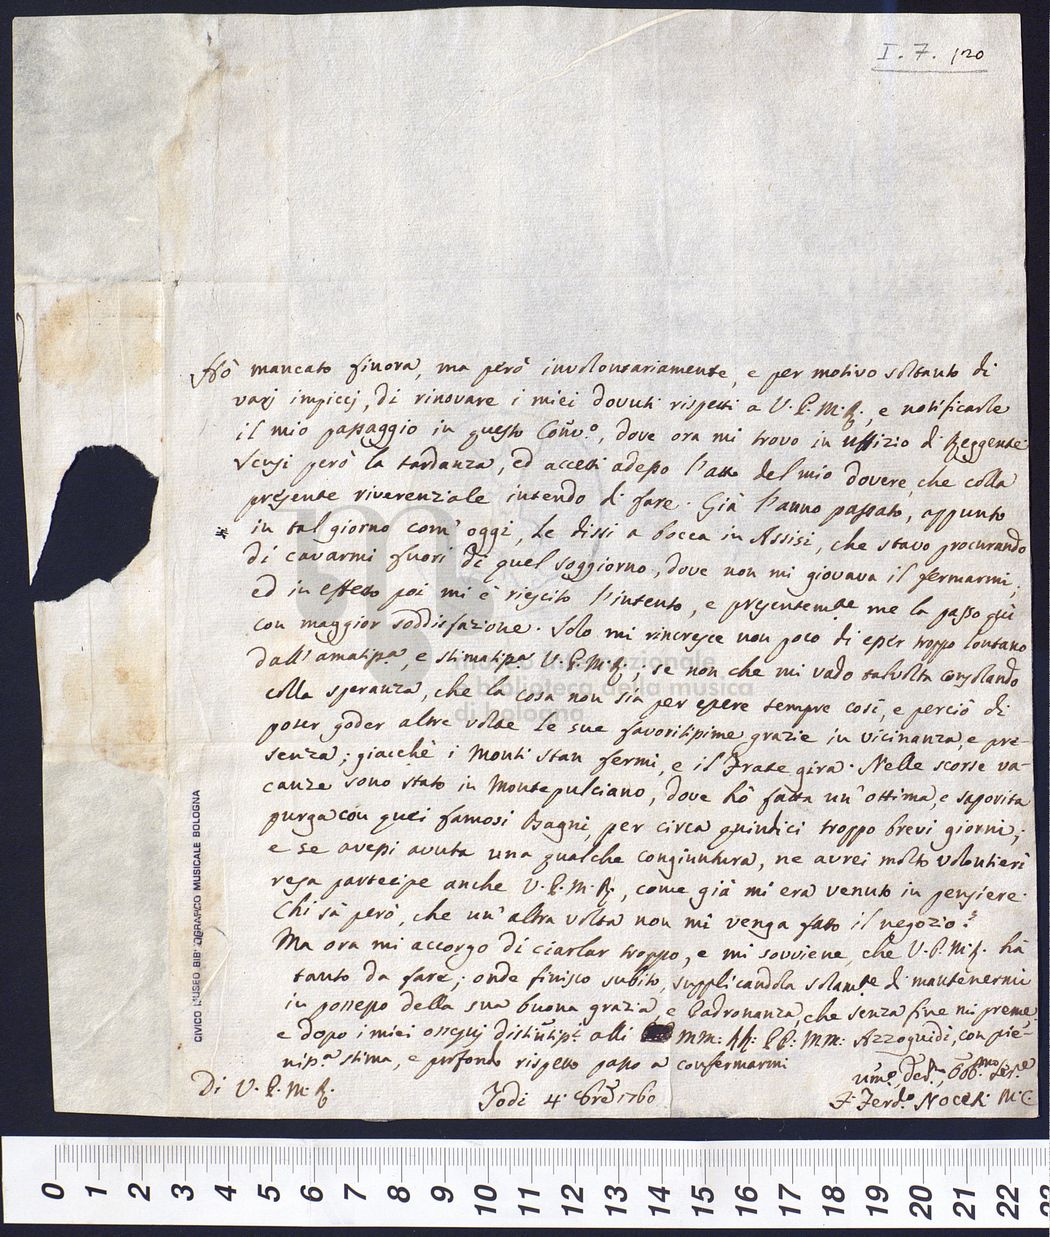 I. 7. 120
Hò mancato finora, ma però involontariamente, e per motivo soltanto di
varj impiccj, di rinovare i miei dovuti rispetti a V. P. M. R., e notificarle
il mio passaggio in questo Conv.º, dove ora mi trovo in uffizio di Reggente
Scusi però la tardanza, ed accetti adesso l'atto del mio dovere, che colla
presente riverenziale intendo di fare. Già l'anno passato, appunto
in tal giorno com' oggi, Le dissi a bocca in Assisi, che stavo procurando
di cavarmi fuori di quel soggiorno, dove non mi giovava il fermarmi;
ed in effetto poi mi è riescito l'intento, e presentem.te me la passo quì
con maggior soddisfazione. Solo mi rincresce non poco di esser troppo lontano
dall'amatiss.a, e stimatiss.a V. P. M. R., se non che mi vado talvolta consolando
colla speranza, che la cosa non sia per essere sempre così, e perciò di
poter goder altre volte le sue favoritissime grazie in vicinanza, e pre-
senza; giacchè i Monti stan fermi, e il Frate gira. Nelle scorse va-
canze sono stato in Montepulciano, dove hò fatta un'ottima, e saporita
purga con quei famosi Bagni, per circa quindici troppo brevi giorni;
e se avessi avuta una qualche congiuntura, ne avrei molto volontieri
resa partecipe anche V. P. M. R., come già mi era venuto in pensiere.
Chi sà però, che un'altra volta non mi venga fatto il negozio?
Ma ora mi accorgo di ciarlar troppo, e mi sovviene, che V. P. M. R. hà
tanto da fare; onde finisco subito, supplicandola solam.te di mantenermi
in possesso della sua buona grazia, e Padronanza, che senza fine mi preme,
e dopo i miei ossequj distintiss.i alli MM: RR: PP: MM: Azzoguidi, con pie-
niss.a stima, e profondo rispetto passo a confermarmi
Di V. P. M. R.
Todi 4. 8bre 1760
Um.o Dev.o, Obb.mo Ser.e
F. Ferd.o Noceti M. C.
CIVICO MUSEO BIBLIOGRAFICO MUSICALE BOLOGNA
museo internazionale
e biblioteca della musica
di bologna
0 1 2 3 4 5 6 7 8 9 10 11 12 13 14 15 16 17 18 19 20 21 22